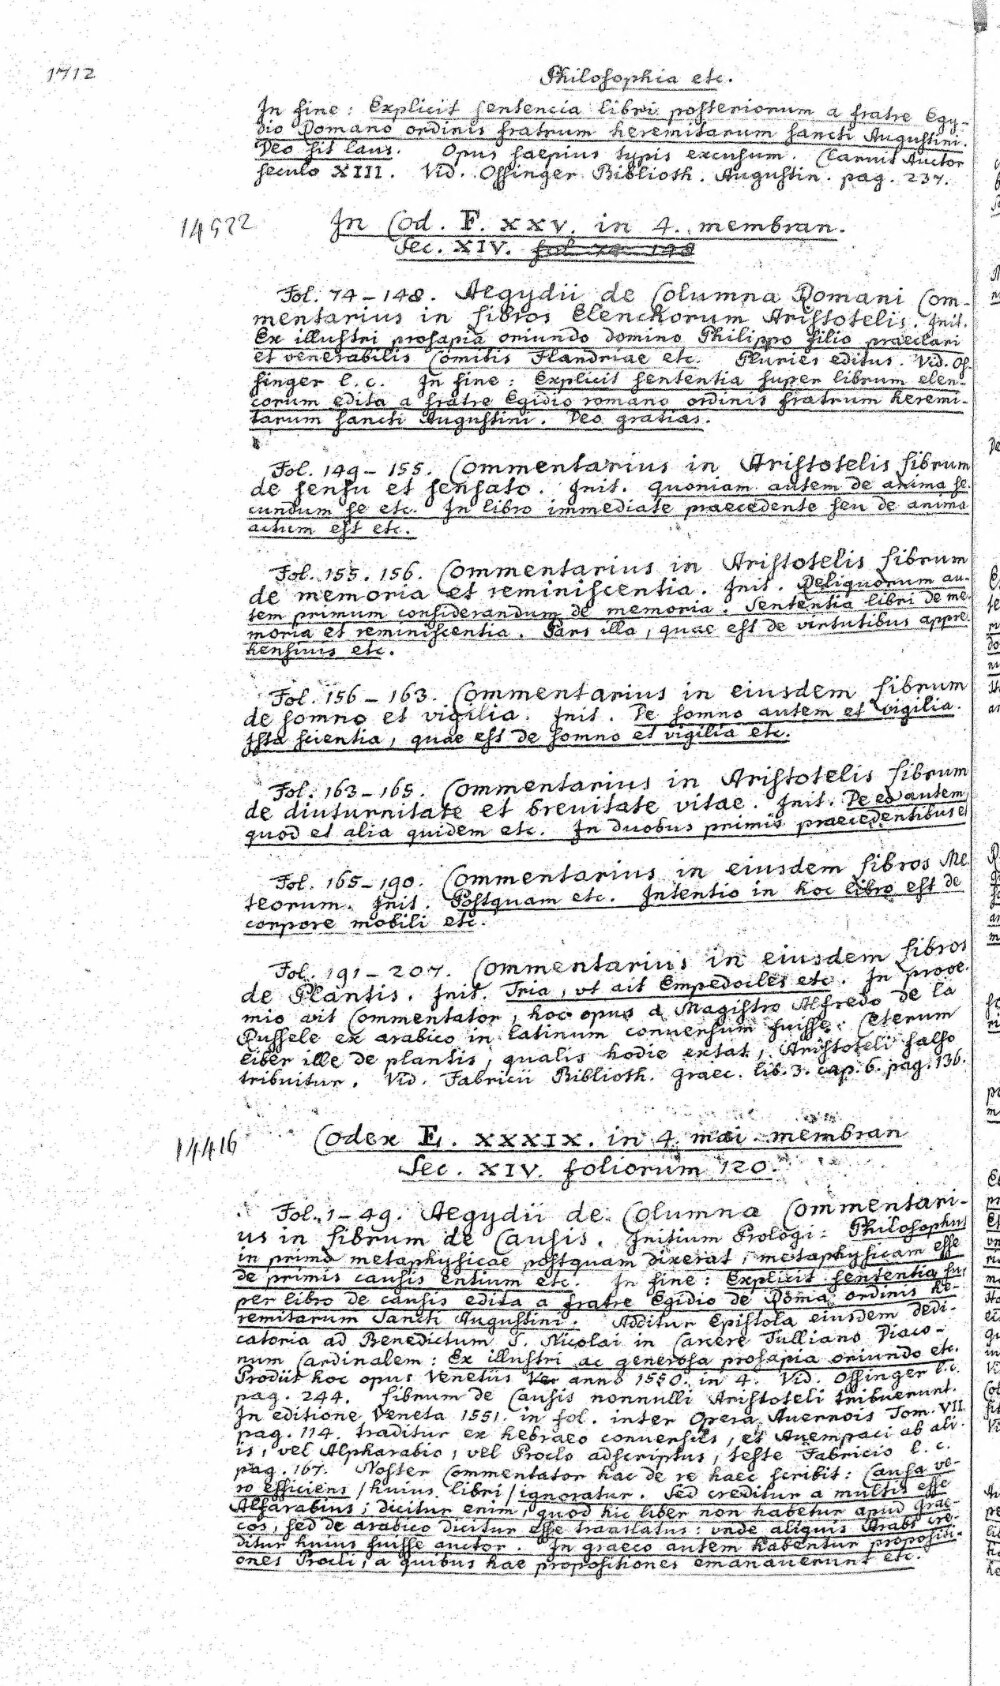 1712
Philosophia etc.
In fine: Explicit sentencia libri posteriorum a fratre Egy-
dio Romano ordinis fratrum heremitarum sancti Augustini.
Deo sit laus. Opus saepius typis excusum. Claruit Auctor
seculo XIII. Vid. Ossinger Biblioth. Augustin. pag. 237.
14522
In Cod. F. XXV. in 4. membran.
Sec. XIV. fol. 74-148
Fol. 74-148. Aegydii de Columna Romani Com-
mentarius in Libros Elenchorum Aristotelis. Init.
Ex illustri prosapia oriundo domino Philippo filio praeclari
et venerabilis Comitis Flandriae etc. Pluries editus. Vid. Os-
singer l. c. In fine: Explicit sententia super librum elen-
corum edita a fratre Egidio romano ordinis fratrum heremi-
tarum sancti Augustini. Deo gratias.
Fol. 149-155. Commentarius in Aristotelis Librum
de sensu et sensato. Init. quoniam autem de anima se-
cundum se etc. In libro immediate praecedente seu de anima
actum est etc.
Fol. 155. 156. Commentarius in Aristotelis Librum
de memoria et reminiscentia. Init. Reliquorum au-
tem primum considerandum de memoria. Sententia libri de me-
moria et reminiscentia. Pars illa, quae est de virtutibus appre-
hensivis etc.
Fol. 156-163. Commentarius in eiusdem Librum
de somno et vigilia. Init. De somno autem et vigilia.
Ista scientia, quae est de somno et vigilia etc.
Fol. 163-165. Commentarius in Aristotelis Librum
de diuturnitate et brevitate vitae. Init. De eo autem,
quod et alia quidem etc. In duobus primis praecedentibus et
Fol. 165-190. Commentarius in eiusdem Libros Me-
teorum. Init. Postquam etc. Intentio in hoc libro est de
corpore mobili etc.
Fol. 191-207. Commentarius in eiusdem Libros
de Plantis. Init. Tria, ut ait Empedocles etc. In prooe-
mio ait Commentator, hoc opus a Magistro Alfredo de la
Russele ex arabico in latinum conversum fuisse. Ceterum
liber ille de plantis, qualis hodie extat, Aristoteli falso
tribuitur. Vid. Fabricii Biblioth. Graec. lib. 3. cap. 6. pag. 136.
14416
Codex E. XXXIX. in 4. mai. membran
Sec. XIV. foliorum 120.
Fol. 1-49. Aegydii de Columna Commentari-
us in Librum de Causis. Initium Prologi: Philosophus
in primo metaphysicae postquam dixerat, metaphysicam esse
de primis causis entium etc. In fine: Explicit sententia su-
per libro de causis edita a fratre Egidio de Roma ordinis he-
remitarum Sancti Augustini. Additur Epistola eiusdem dedi-
catoria ad Benedictum S. Nicolai in Carcere Tulliano Diaco-
num Cardinalem: Ex illustri ac generosa prosapia oriundo etc.
Prodiit hoc opus Venetiis anno 1550. in 4. Vid. Ossinger l. c.
pag. 244. Librum de Causis nonnulli Aristoteli tribuerunt.
In editione Veneta 1551. in fol. inter Opera Averrois Tom. VII.
pag. 114. traditur ex hebraeo conversus, et Avempaci ab ali-
is, vel Alpharabio, vel Proclo adscriptus, teste Fabricio l. c.
pag. 167. Noster Commentator hac de re haec scribit: Causa ve-
ro efficiens /huius libri/ ignoratur. Sed creditur a multis esse
Alfarabius; dicitur enim, quod hic liber non habetur apud Grae-
cos, sed de arabico dicitur esse translatus: unde aliquis Arabs cre-
ditur huius fuisse auctor. In graeco autem habentur propositi-
ones Procli, a quibus hae propositiones emanaverunt etc.